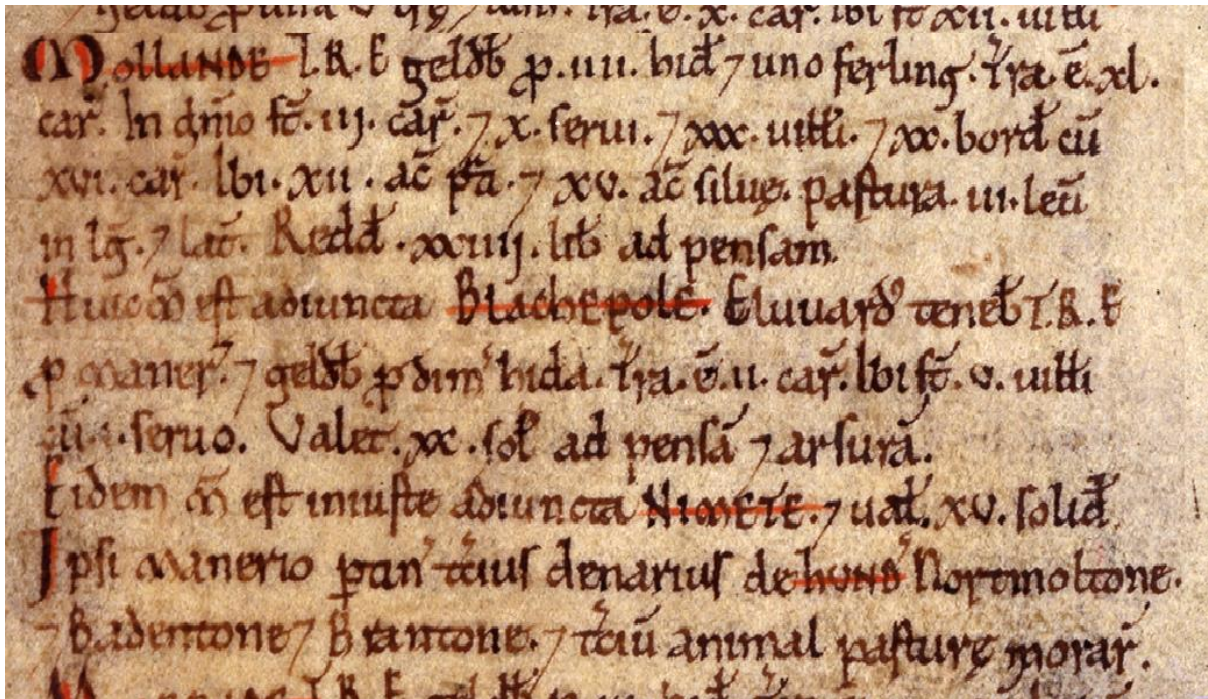 geldb̄ p una v̄ ... t̄ra.ē.x. car̄. Ibi st̄ xii. uilli
Mollande T.R.E geldb̄ ꝑ.iiii. hid̄ ⁊ uno ferling. T̄ra.ē.xl.
car̄. In dn̄io st̄.iij. car̄.⁊ x. serui.⁊ xxx. uilli.⁊ xx. bord̄ cū
xvi. car̄. Ibi. xii. ac̄ p̄ti.⁊ xv. ac̄ siluę. pastura. iii. leū
in lḡ.⁊ lat̄. Redd̄. xxiiij. lib̄ ad pensam.
Huic m̄ est adiuncta Blachepole. Eluuard' teneb̄ T.R.E
ꝑ maner'.⁊ geldb̄ ꝑ dim' hida. T̄ra.ē.ii. car̄. Ibi st̄. v. uilli
cū.i. seruo. Valet. xx. sol̄ ad pensā ⁊ arsurā.
Eidem m̄ est iniuste adiuncta Nimete.⁊ ual̄. xv. solid̄.
Ipsi manerio ꝑtin' t̄cius denarius de hund' Nortmoltone.
⁊ Badentone ⁊ Brantone.⁊ t̄ciū animal pasturę morar̄.
T.R.E geldb̄